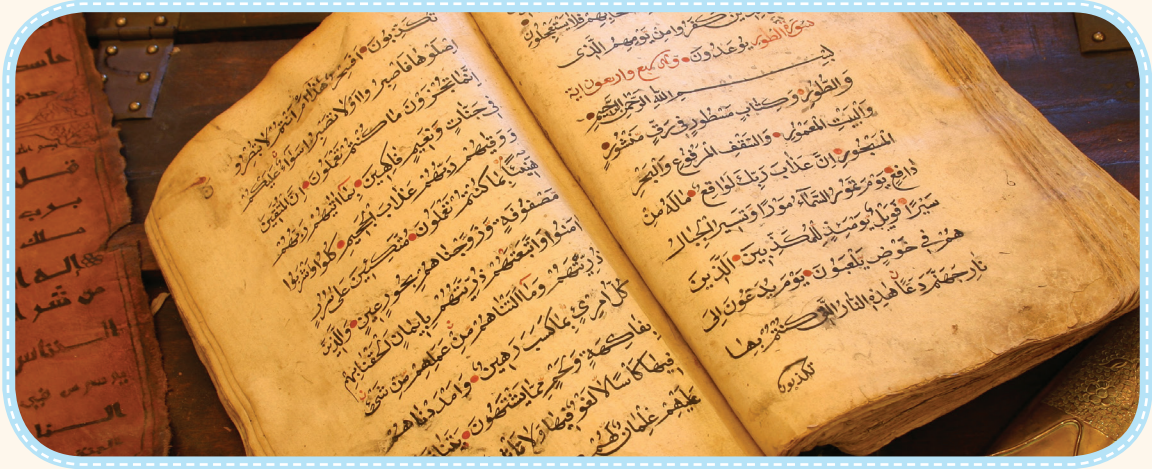 فلا يستعجلون
كفروا من يومهم الذى
يوعدون سورة الطور سبع واربعون اية
بسم الله الرحمن الرحيم
والطور وكتاب مسطور في رق منشور
والبيت المعمور والسقف المرفوع والبحر
المسجور ان عذاب ربك لواقع ماله من
دافع يوم تمور السماء مورا وتسير الجبال
سيرا فويل يومئذ للمكذبين الذين
هم في خوض يلعبون يوم يدعون الى
نار جهنم دعا هذه النار التى كنتم بها
تكذبون
تكذبون افسحر هذا ام انتم لا تبصرون
اصلوها فاصبروا اولا تصبروا سواء عليكم
انما تجزون ما كنتم تعملون ان المتقين
في جنات ونعيم فاكهين بما اتيهم ربهم
ووقيهم ربهم عذاب الجحيم كلوا واشربوا
هنيئا بما كنتم تعملون متكئين على سرر
مصفوفة وزوجناهم بحور عين والذين
امنوا واتبعتهم ذريتهم بايمان الحقنا بهم
ذريتهم وما التناهم من عملهم من شئ
كل امرئ بما كسب رهين وامددناهم
بفاكهة ولحم مما يشتهون
فيها كأسا لا لغو فيها ولا
عليهم غلمان لهم
حاسد
قل
برب
ملك
اله
من شر
الخناس
يوسوس في